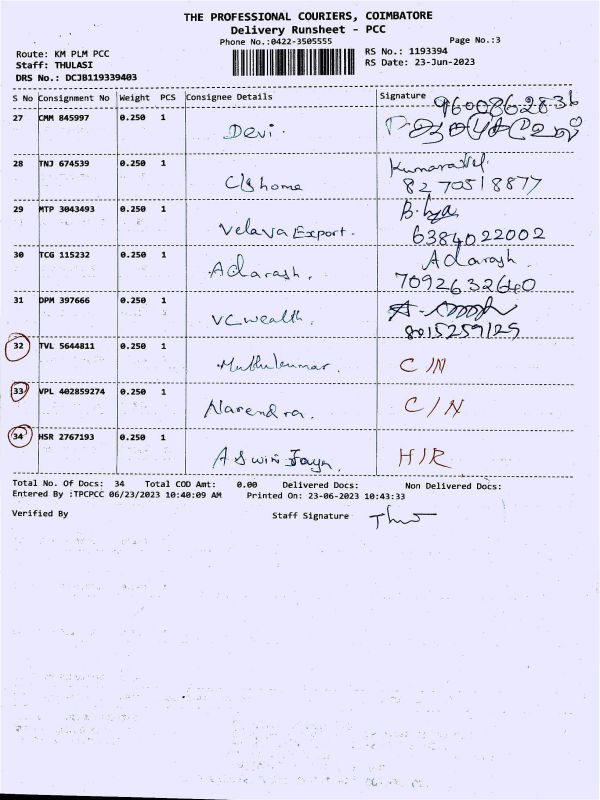 THE PROFESSIONAL COURIERS, COIMBATORE
Delivery Runsheet - PCC
Phone No.:0422-3505555
Page No.:3
Route: KM PLM PCC
Staff: THULASI
DRS No.: DCJB119339403
RS No.: 1193394
RS Date: 23-Jun-2023
S No Consignment No Weight PCS Consignee Details Signature
9600862836
27 CMM 845997 0.250 1 Devi.
28 TNJ 674539 0.250 1 C/s home Kumaravel
8270518877
29 MTP 3043493 0.250 1 Velava Export. B.
6384022002
30 TCG 115232 0.250 1 Adarash. Adarash
7092632640
31 DPM 397666 0.250 1 VC wealth.
8015259129
32 TVL 5644811 0.250 1 Muthukumar. C/N
33 VPL 402859274 0.250 1 Narendra. C/N
34 HSR 2767193 0.250 1 Aswini Jaya. H/R
Total No. Of Docs: 34 Total COD Amt: 0.00 Delivered Docs: Non Delivered Docs:
Entered By :TPCPCC 06/23/2023 10:40:09 AM Printed On: 23-06-2023 10:43:33
Verified By Staff Signature